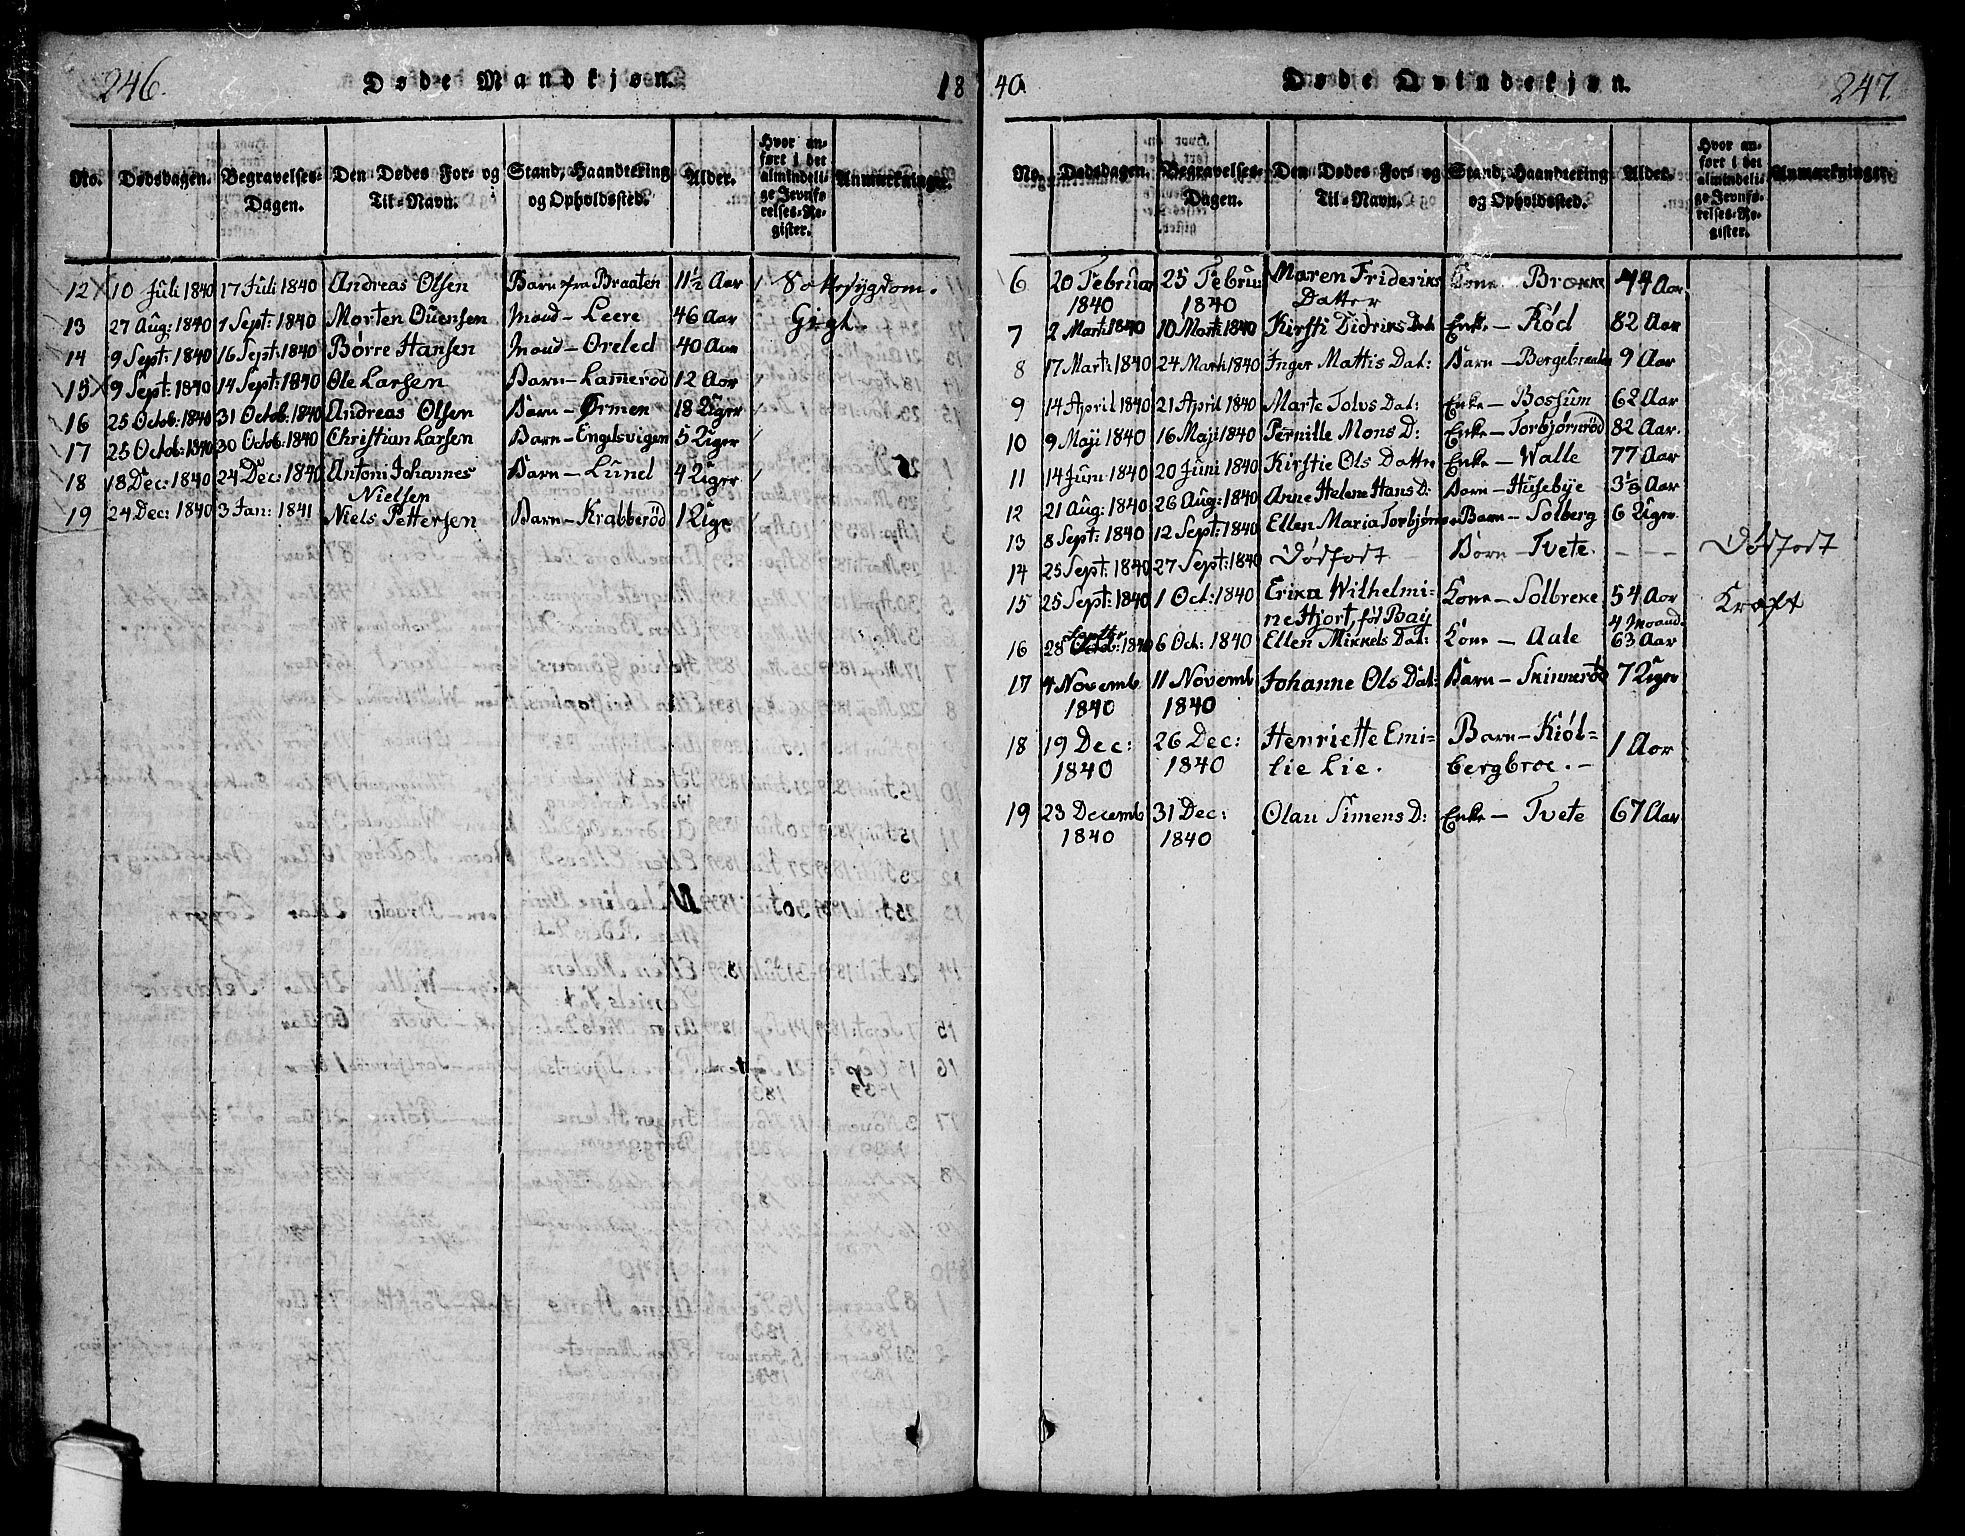 246. Døde Mandkjøn. 18
No. Dødsdagen. Begravelses-Dagen. Den Dødes For- og Til-Navn. Stand, Haandtering og Opholdssted. Alder. Hvor anført i det almindelige Jevnførelses-Register. Anmærkninger.
12 10 Juli 1840 17 Juli 1840 Andreas Olsen Barn fra Braaten 11½ Aar
13 27 Aug: 1840 1 Sept: 1840 Morten Ouensen Mand - Leere 46 Aar Gigt.
14 9 Sept: 1840 16 Sept: 1840 Børre Hansen Mand - Oreled 40 Aar
15 9 Sept: 1840 14 Sept: 1840 Ole Larsen Barn - Lammerød 12 Aar
16 25 Octob: 1840 31 Octob: 1840 Andreas Olsen Barn - Ørmen 18 Uger
17 25 Octob: 1840 30 Octob: 1840 Christian Larsen Barn - Engelsvigen 5 Uger
18 18 Dec: 1840 24 Dec: 1840 Antoni Johannes Barn - Lund 4 Uger
Nielsen
19 24 Dec: 1840 3 Jan: 1841 Niels Pettersen Barn - Krabberød 1 Uge
40. Døde Qvindekjøn. 247.
No. Dødsdagen. Begravelses-Dagen. Den Dødes For- og Til-Navn. Stand, Haandtering og Opholdssted. Alder. Hvor anført i det almindelige Jevnførelses-Register. Anmærkninger.
6 20 Februar 25 Februar Maren Frideriks Kone - Brokke 44 Aar
1840 1840 Datter
7 2 Marti 1840 10 Marti 1840 Kirsti Didriks Dat: Enke - Rød 82 Aar
8 17 Marti 1840 24 Marti 1840 Inger Mattis Dat: Barn - Bergebraaten 9 Aar
9 14 April 1840 21 April 1840 Marte Tolvs Dat: Enke - Bossum 62 Aar
10 9 Maji 1840 16 Maji 1840 Pernille Mons D: Enke - Torbjørnrød 82 Aar.
11 14 Juni 1840 20 Juni 1840 Kirstie Ols Datter Enke - Walle 77 Aar
12 21 Aug: 1840 26 Aug: 1840 Anne Helene Hans D: Barn - Husebÿe Aar
13 8 Sept: 1840 12 Sept: 1840 Ellen Maria Barn - Solberg 6 Uger
14 25 Sept: 1840 27 Sept: 1840 Dødfødt Barn - Tvete. - - - Dødfødt
15 25 Sept: 1840 1 Oct: 1840 Erika Wilhelmi- Kone - Solbreke 54 Aar Kræft
ne Hjort, fød Bay 4 Maand.
16 28 1840 6 Oct: 1840 Ellen Mikkels Dat: Kone - Aale 63 Aar
17 4 Novemb 11 Novemb Johanne Ols Dat: Barn - Skinnerød 7 Uger
1840 1840
18 19 Dec: 26 Dec: Henriette Emi- Barn - Kiøl- 1 Aar
1840 1840 lie Lie. bergbroe. -
19 23 Decemb 31 Dec: Olau Simens D: Enke - Tvete 67 Aar
1840 1840